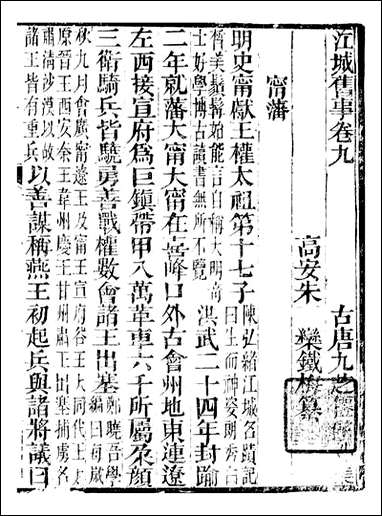 江城舊事卷九
古唐九芝僊
高安朱 欒鐵梅纂
甯藩
明史甯獻王權太祖第十七子陳弘緒江城名蹟記曰生而神姿明秀白
皙美鬚髯始能言自稱大明奇士好學博古讀書無所不覽洪武二十四年封踰
二年就藩大甯大甯在喜峰口外古會州地東連遼
左西接宣府爲巨鎮帶甲八萬革車六千所屬朵顏
三衛騎兵皆驍勇善戰權數會諸王出塞鄭曉吾學編曰每歲
秋九月會廣甯遼王及甯王宣府谷王大同代王太原晉王西安秦王韋州慶王甘州肅王出塞捕虜名
肅清沙漠以故諸王皆有重兵以善謀稱燕王初起兵與諸將議曰